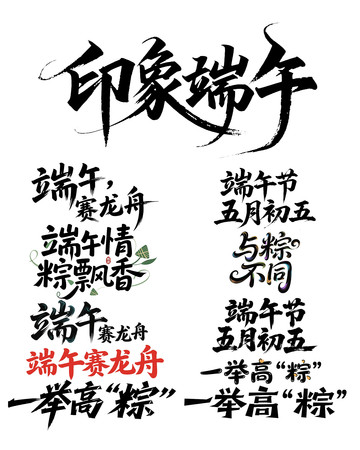 印象端午
端午，
赛龙舟
端午情
粽飘风香
端午赛龙舟
端午赛龙舟
一举高“粽”
端午节
五月初五
与粽
不同
端午节
五月初五
一举高“粽”
一举高“粽”